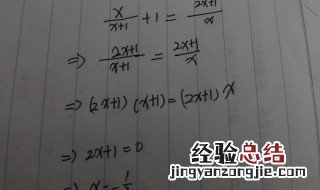 x/(x+1) + 1 = (2x+1)/x
⇒ (2x+1)/(x+1) = (2x+1)/x
⇒ (2x+1)(x+1) = (2x+1)x
⇒ 2x+1=0
⇒ x = -1
经验总结
www.jingyanzongjie.com